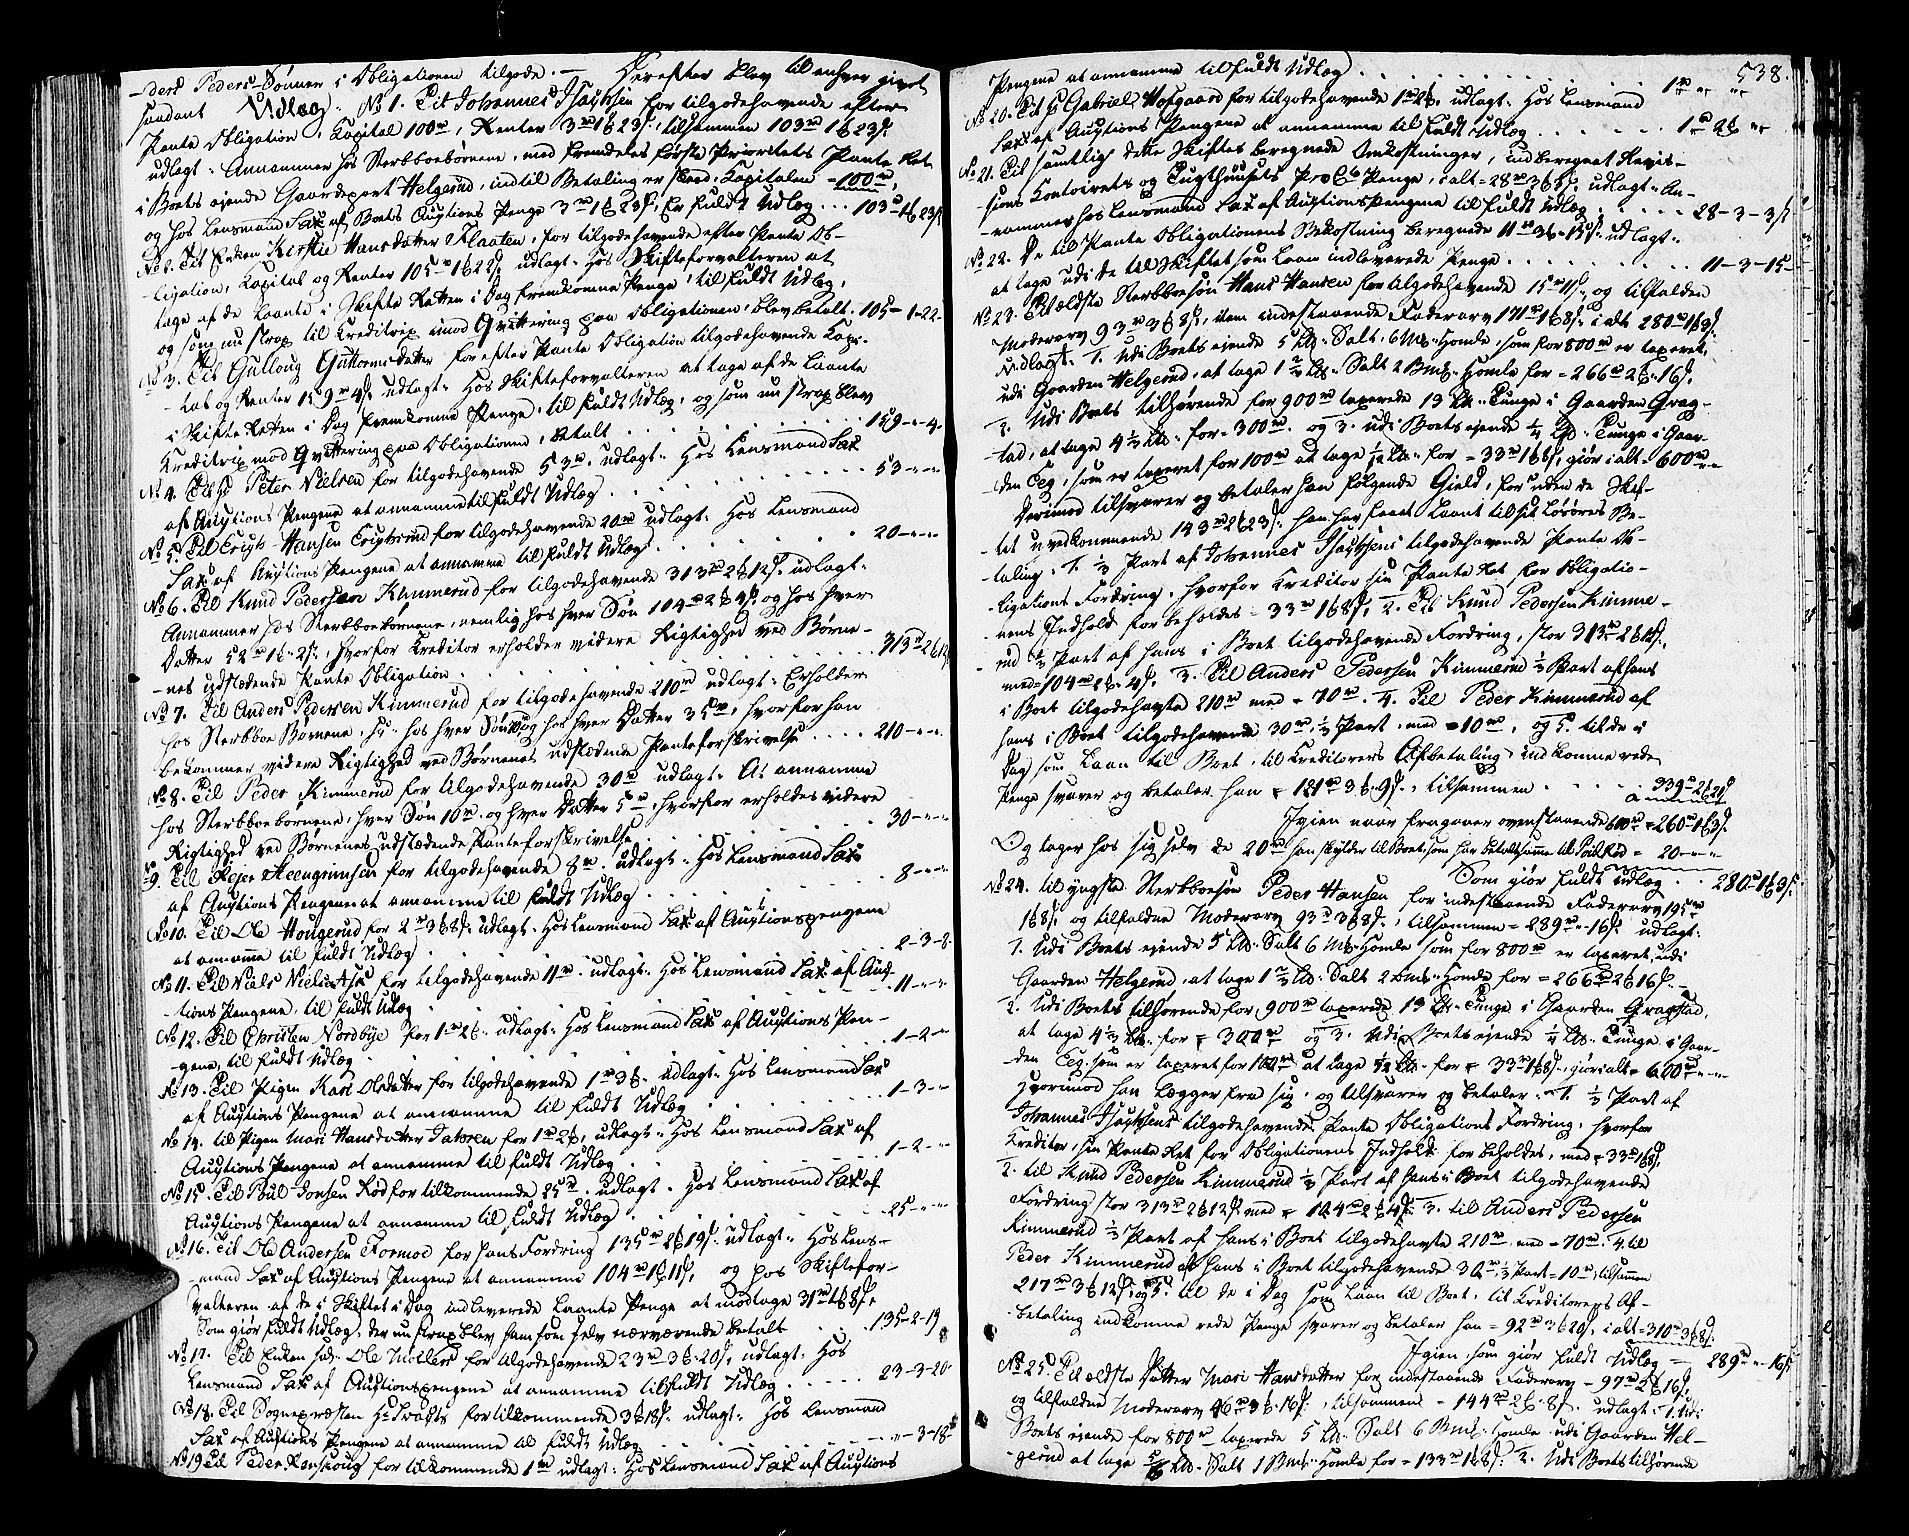 -ders Peders Sønner i Obligationen tilgode. — Derefter blev til enhver givet
saadant Udlæg: No 1. Til Johannes Isachsen for tilgodehavende efter
Pante Obligation, Kapital 100rd, Renter 3rd 1 ß 23 s, tilsammen 103rd 1 ß 23 s.
udlagt: Annammer hos Sterbboebørnene, med fremdeles første Prioritets Pante Ret
i Boets ejende Gaardepart Helgerud, indtil Betaling er skeed, Kapitalen - 100rd,
og hos Lensmand Sax af Boets Auctions Penge 3rd 1 ß 23 s, Er fuldt Udlæg ... 103rd 1 ß 23 s
No 2. Til Enken Kirstie Hansdatter Flaaten, for tilgodehavende efter Pante Ob-
-ligation, Kapital og Renter 105rd 1 ß 22 s udlagt: Hos Skifteforvalteren at
tage af de Laante i Skifte Retten i Dag fremkomne Penge, til fuldt Udlæg,
og som nu strax til Kreditrix imod Qvittering paa Obligationen blev betalt. 105 - 1 - 22 -
No 3. Til Gulloug Guttormsdatter for efter Pante Obligation tilgodehavende Kapi-
-tal og Renter 159rd 4 s udlagt: Hos Skifteforvalteren at tage af de Laante
i Skifte Retten i Dag fremkomne Penge, til fuldt Udlæg, og som nu strax blev
Kreditrix mod Qvittering paa Obligationen, betalt . . . 159 - " - 4 -
No 4. Til Hr Peter Nielsen for tilgodehavende 53rd. udlagt: Hos Lensmand Sax
af Auctions Pengene at annamme til fuldt Udlæg . . . 53 - " - "
No 5. Til Erich Hansen Erichsrud for tilgodehavende 20rd udlagt: Hos Lensmand
Sax af Auctions Pengene at annamme til fuldt Udlæg . . . 20 - " - "
No 6. Til Knud Pedersen Kimmerud for tilgodehavende 313rd 2 ß 12 s. udlagt:
Annammer hos Sterbboebørnene, nemlig hos hver Søn 104rd 2 ß 4 s og hos hver
Datter 52rd 1 ß 2 s, hvorfor Kreditor erholder videre Rigtighed ved Børne-
-nes udstædende Pante Obligation . . . 313rd 2 ß 12
No 7. Til Anders Pedersen Kimmerud for tilgodehavende 210rd udlagt: Erholder
hos Sterbboe Børnene, hos hver Søn 70rd og hos hver Datter 35rd, hvorfor han
bekommer videre Rigtighed ved Børnenes udstædende Panteforskrivelse . . . 210 - " - "
No 8. Til Peder Kimmerud for tilgodehavende 30rd udlagt: At annamme
hos Sterbboebørnene, hver Søn 10rd og hver Datter 5rd, hvorfor erholdes videre
Rigtighed ved Børnenes udstædende Panteforskrivelse . . . 30 - " - "
No 9. Til Peder for tilgodehavende 8rd. udlagt: Hos Lensmand Sax
af Auctions Pengene at annamme til fuldt Udlæg . . . 8 - " - "
No 10. Til Ole Hougerud for 2rd 3 ß 8 s. udlagt: Hos Lensmand Sax af Auctionspengene
at annamme til fuldt Udlæg . . . 2 - 3 - 8
No 11. Til Niels Nielsen for tilgodehavende 11rd. udlagt: Hos Lensmand Sax af Auc-
-tions Pengene, til fuldt Udlæg . . . 11 - " - "
No 12. Til Christen Nordbye for 1rd 2 ß. udlagt: Hos Lensmand Sax af Auctions Pen-
-gene, til fuldt Udlæg . . . 1 - 2 - "
No 13. Til Pigen Kari Olsdatter for tilgodehavende 1rd 3 ß. udlagt: Hos Lensmand Sax
af Auctions Pengene at annamme til fuldt Udlæg . . . 1 - 3 - "
No 14. til Pigen Mari Hansdatter for 1rd 2 ß, udlagt: Hos Lensmand Sax af
Auctions Pengene at annamme til fuldt Udlæg . . . 1 - 2 - "
No 15. Til Poul Jonsen Rød for tilkommende 25rd. udlagt. Hos Lensmand Sax af
Auctions Pengene at annamme til fuldt Udlæg . . . 25 - " - "
No 16. Til Ole Andersen Formoe for hans Fordring 135rd 2 ß 19 s. udlagt: Hos Lens-
-mand Sax af Auctions Pengene at annamme 104rd 1 ß 11 s, og hos Skiftefor-
valteren af de i Skiftet i Dag indleverede Laante Penge at modtage 31rd 1 ß 8 s,
Som giør fuldt Udlæg, der nu strax blev ham som selv nærværende betalt . . . 135 - 2 - 19
No 17. Til Enken sal. Ole Møllers for tilgodehavende 23rd 3 ß 20 s, udlagt: Hos
Lensmand Sax af Auctionspengene at annamme til fuldt Udlæg . . . 23 - 3 - 20
No 18. Til Sognepræsten Hr for tilkommende 3 ß 18 s. udlagt: Hos Lensmand
Sax af Auctions Pengene at annamme til fuldt Udlæg . . . " - 3 - 18
No 19 Til Peder for tilkommende 1rd udlagt: Hos Lensmand Sax af Auctions
538.
Pengene at annamme til fuldt Udlæg . . . 1rd " "
No 20. Til Hr Gabriel Hofgaard for tilgodehavende 1rd 2 ß. udlagt: Hos Lensmand
Sax af Auctions Pengene at annamme til fuldt Udlæg . . . 1rd 2 ß "
No 21. Til samtlig dette Skiftes beregnede Omkostninger, indberegnet Revi-
-sions Contoirets og Tugthusets Pro Cto Penge, i alt = 28rd 3 ß 3 s, udlagt: An-
-nammer hos Lensmand Sax af Auctions Pengene til fuldt Udlæg . . . 28 - 3 - 3 s
No 22. De til Pante Obligationens Bekostning beregnede 11rd 3 ß 15 s. udlagt:
at tage udi de til Skiftet som Laan indleverede Penge . . . 11 - 3 - 15 -
No 23. Til ældste Sterbboesøn Hans Hansen for tilgodehavende 15rd 11 s, og tilfalden
Moderarv 93rd 3 ß 8 s, item indestaaende Faderarv 171rd 1 ß 8 s. i alt 280rd 1 ß 3 s.
Udlagt. 1. Udi Boets ejende 5 Lb. Salt 6 Mk. Homle, som for 800rd er taxeret,
udi Gaarden Helgerud, at tage 1 2/3 Lb. Salt 2 Bmk. Homle for = 266rd 2 ß 16 s.
2. Udi Boets tilhørende for 900rd taxerede 13 Lb. Tunge i Gaarden Grag-
-stad, at tage 4 1/3 Lb. for = 300rd. og 3. udi Boets ejende 1/4 Lb. Tunge i Gaar-
-den Teg, som er taxeret for 100rd at tage 1/12 Lb. for = 33rd 1 ß 8 s, giør i alt = 600rd " "
Derimod tilsvarer og betaler han følgende Gield, foruden de Skif-
-tet uvedkommende 143rd 2 ß 23 s. han har faaet Laant til sit Løsøres Be-
-taling: 1. 1/3 Part af Johannes Isachsens tilgodehavende Pante Ob-
-ligations Fordring, hvorfor Kreditor sin Pante Ret for Obligatio-
-nens Indhold forbeholdes = 33rd 1 ß 8 s, 2. Til Knud Pedersen Kimme-
-rud 1/3 Part af hans i Boet tilgodehavende Fordring, stor 313rd 2 ß 12 s,
med = 104rd 2 ß 4 s. 3. Til Anders Pedersen Kimmerud 1/3 Part af hans
i Boet tilgodehavte 210rd med = 70rd. 4. Til Peder Kimmerud af
hans i Boet tilgodehavende 30rd, 1/3 Part, med = 10rd, og 5. til de i
Dag som Laan til Boet, til Kreditorers Afbetaling indkomne rede
Penge svarer og betaler han = 121rd 3 ß 9 s, tilsammen . . . 339rd 2 ß 21 s
Igien naar fragaaer ovenstaaende 600rd = 260rd 1 ß 3 s.
Og tager hos sig selv de 20rd han skylder til Boet, som har betalt samme til Poul Rød = 20 - " - "
Som giør fuldt Udlæg . . . 280rd 1 ß 3 s.
No 24. til yngste Sterbboesøn Peder Hansen for indestaaende Faderarv 195rd
1 ß 8 s, og tilfalden Moderarv 93rd 3 ß 8 s, tilsammen = 289rd " 16 s. udlagt:
1. Udi Boets ejende 5 Lb. Salt 6 Mk. Homle som for 800rd er taxeret, udi
Gaarden Helgerud, at tage 1 2/3 Lb. Salt 2 Bmk. Homle for = 266rd 2 ß 16 s. -
2. Udi Boets tilhørende for 900rd taxerede 13 Lb. Tunge i Gaarden Gragstad,
at tage 4 1/3 Lb. for = 300rd og 3. Udi Boets ejende 1/4 Lb. Tunge i Gaar-
-den Teg, som er taxeret for 100rd at tage 1/12 Lb. for = 33rd 1 ß 8 s, giør i alt = 600rd " - "
Hvorimod han Lægger fra sig, og tilsvarer og betaler: 1. 1/3 Part af
Johannes Isachsens tilgodehavende Pante Obligations Fordring, hvorfor
Kreditor, sin Pante Ret for Obligationens Indhold forbeholdes, med = 33rd 1 ß 8 s,
2. til Knud Pedersen Kimmerud 1/3 Part af hans i Boet tilgodehavende
Fordring stor 313rd 2 ß 12 s. med = 104rd 2 ß 4 s. 3. til Anders Pedersen
Kimmerud 1/3 Part af hans i Boet tilgodehavte 210rd. med = 70rd. 4. til
Peder Kimmerud af hans i Boet tilgodehavende 30rd, 1/3 Part = 10rd, tilsammen
217rd 3 ß 12 s, og 5. til de i Dag som Laan til Boet, til Kreditorers Af-
-betaling indkomne rede Penge svarer og betaler han = 92rd 3 ß 20 s, i alt = 310rd 3 ß 8 s.
Igien, som giør fuldt Udlæg — 289rd " 16 s
No 25. Til ældste Datter Mari Hansdatter for indestaaende Faderarv = 97rd 2 ß 16 s,
og tilfalden Moderarv 46rd 3 ß 16 s, tilsammen = 144rd 2 ß 8 s. udlagt: 1. Udi
Boets ejende for 800rd taxerede 5 Lb. Salt 6 Bmk. Homle udi Gaarden Hel-
-gerud at tage 5/6 Lb. Salt 1 Bmk. Homle for = 133rd 1 ß 8 s. 2. Udi Boets tilhørende